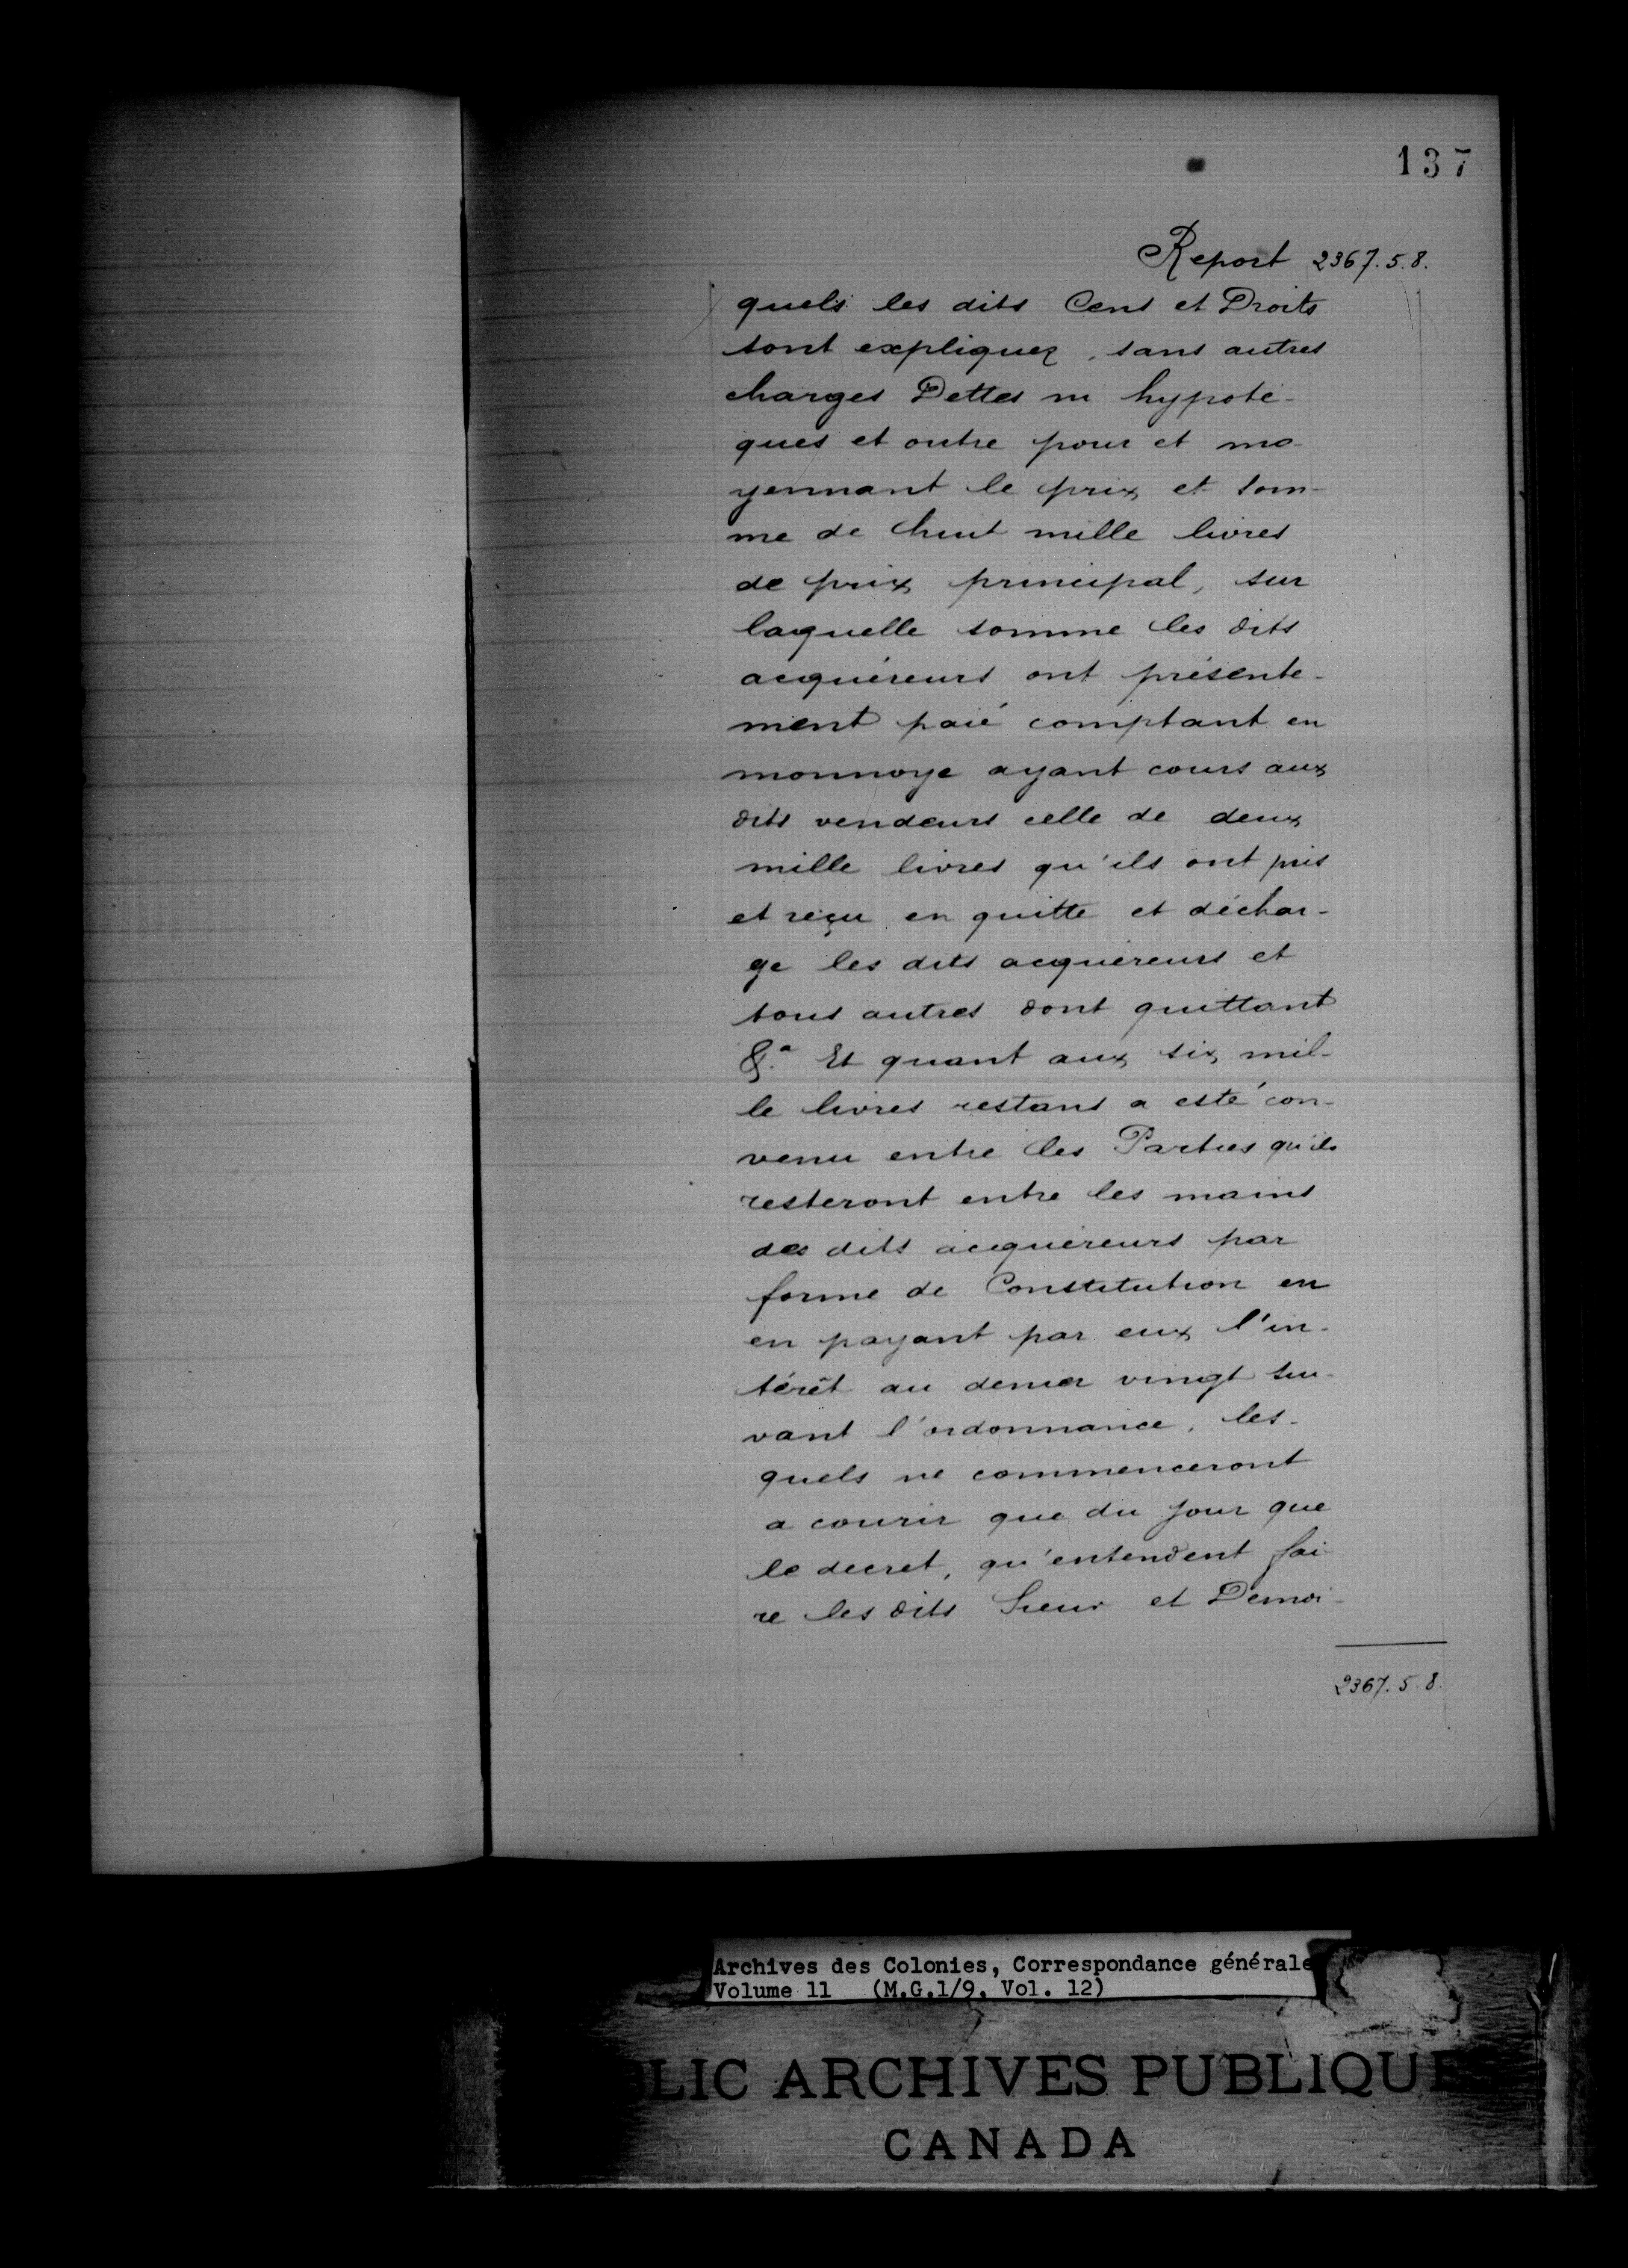 137
Report 2367.5.8.
quels les dits Cens et Droits
sont expliquez, sans autres
charges Dettes ni hypoté-
ques et outre pour et mo-
yennant le prix et som-
me de huit mille livres
de prix principal, sur
laquelle somme les dits
acquéreurs ont présente-
ment paié comptant en
monnoye ayant cours aux
dits vendeurs celle de deux
mille livres qu'ils ont pris
et reçu en quitte et déchar-
ge les dits acquéreurs et
tous autres dont quittant
&.a Et quant aux six mil-
le livres restans a esté con-
venu entre les Parties qu'ils
resteront entre les mains
des dits acquéreurs par
forme de Constitution en
en payant par eux l'in-
térêt au denier vingt sui-
vant l'ordonnance, les-
quels ne commenceront
a courir que du jour que
le decret, qu'entendent fai-
re les dits Sieur et Demoi-
2367.5.8.
Archives des Colonies, Correspondance générale
Volume 11 (M.G.1/9, Vol. 12)
LIC ARCHIVES PUBLIQUE
CANADA